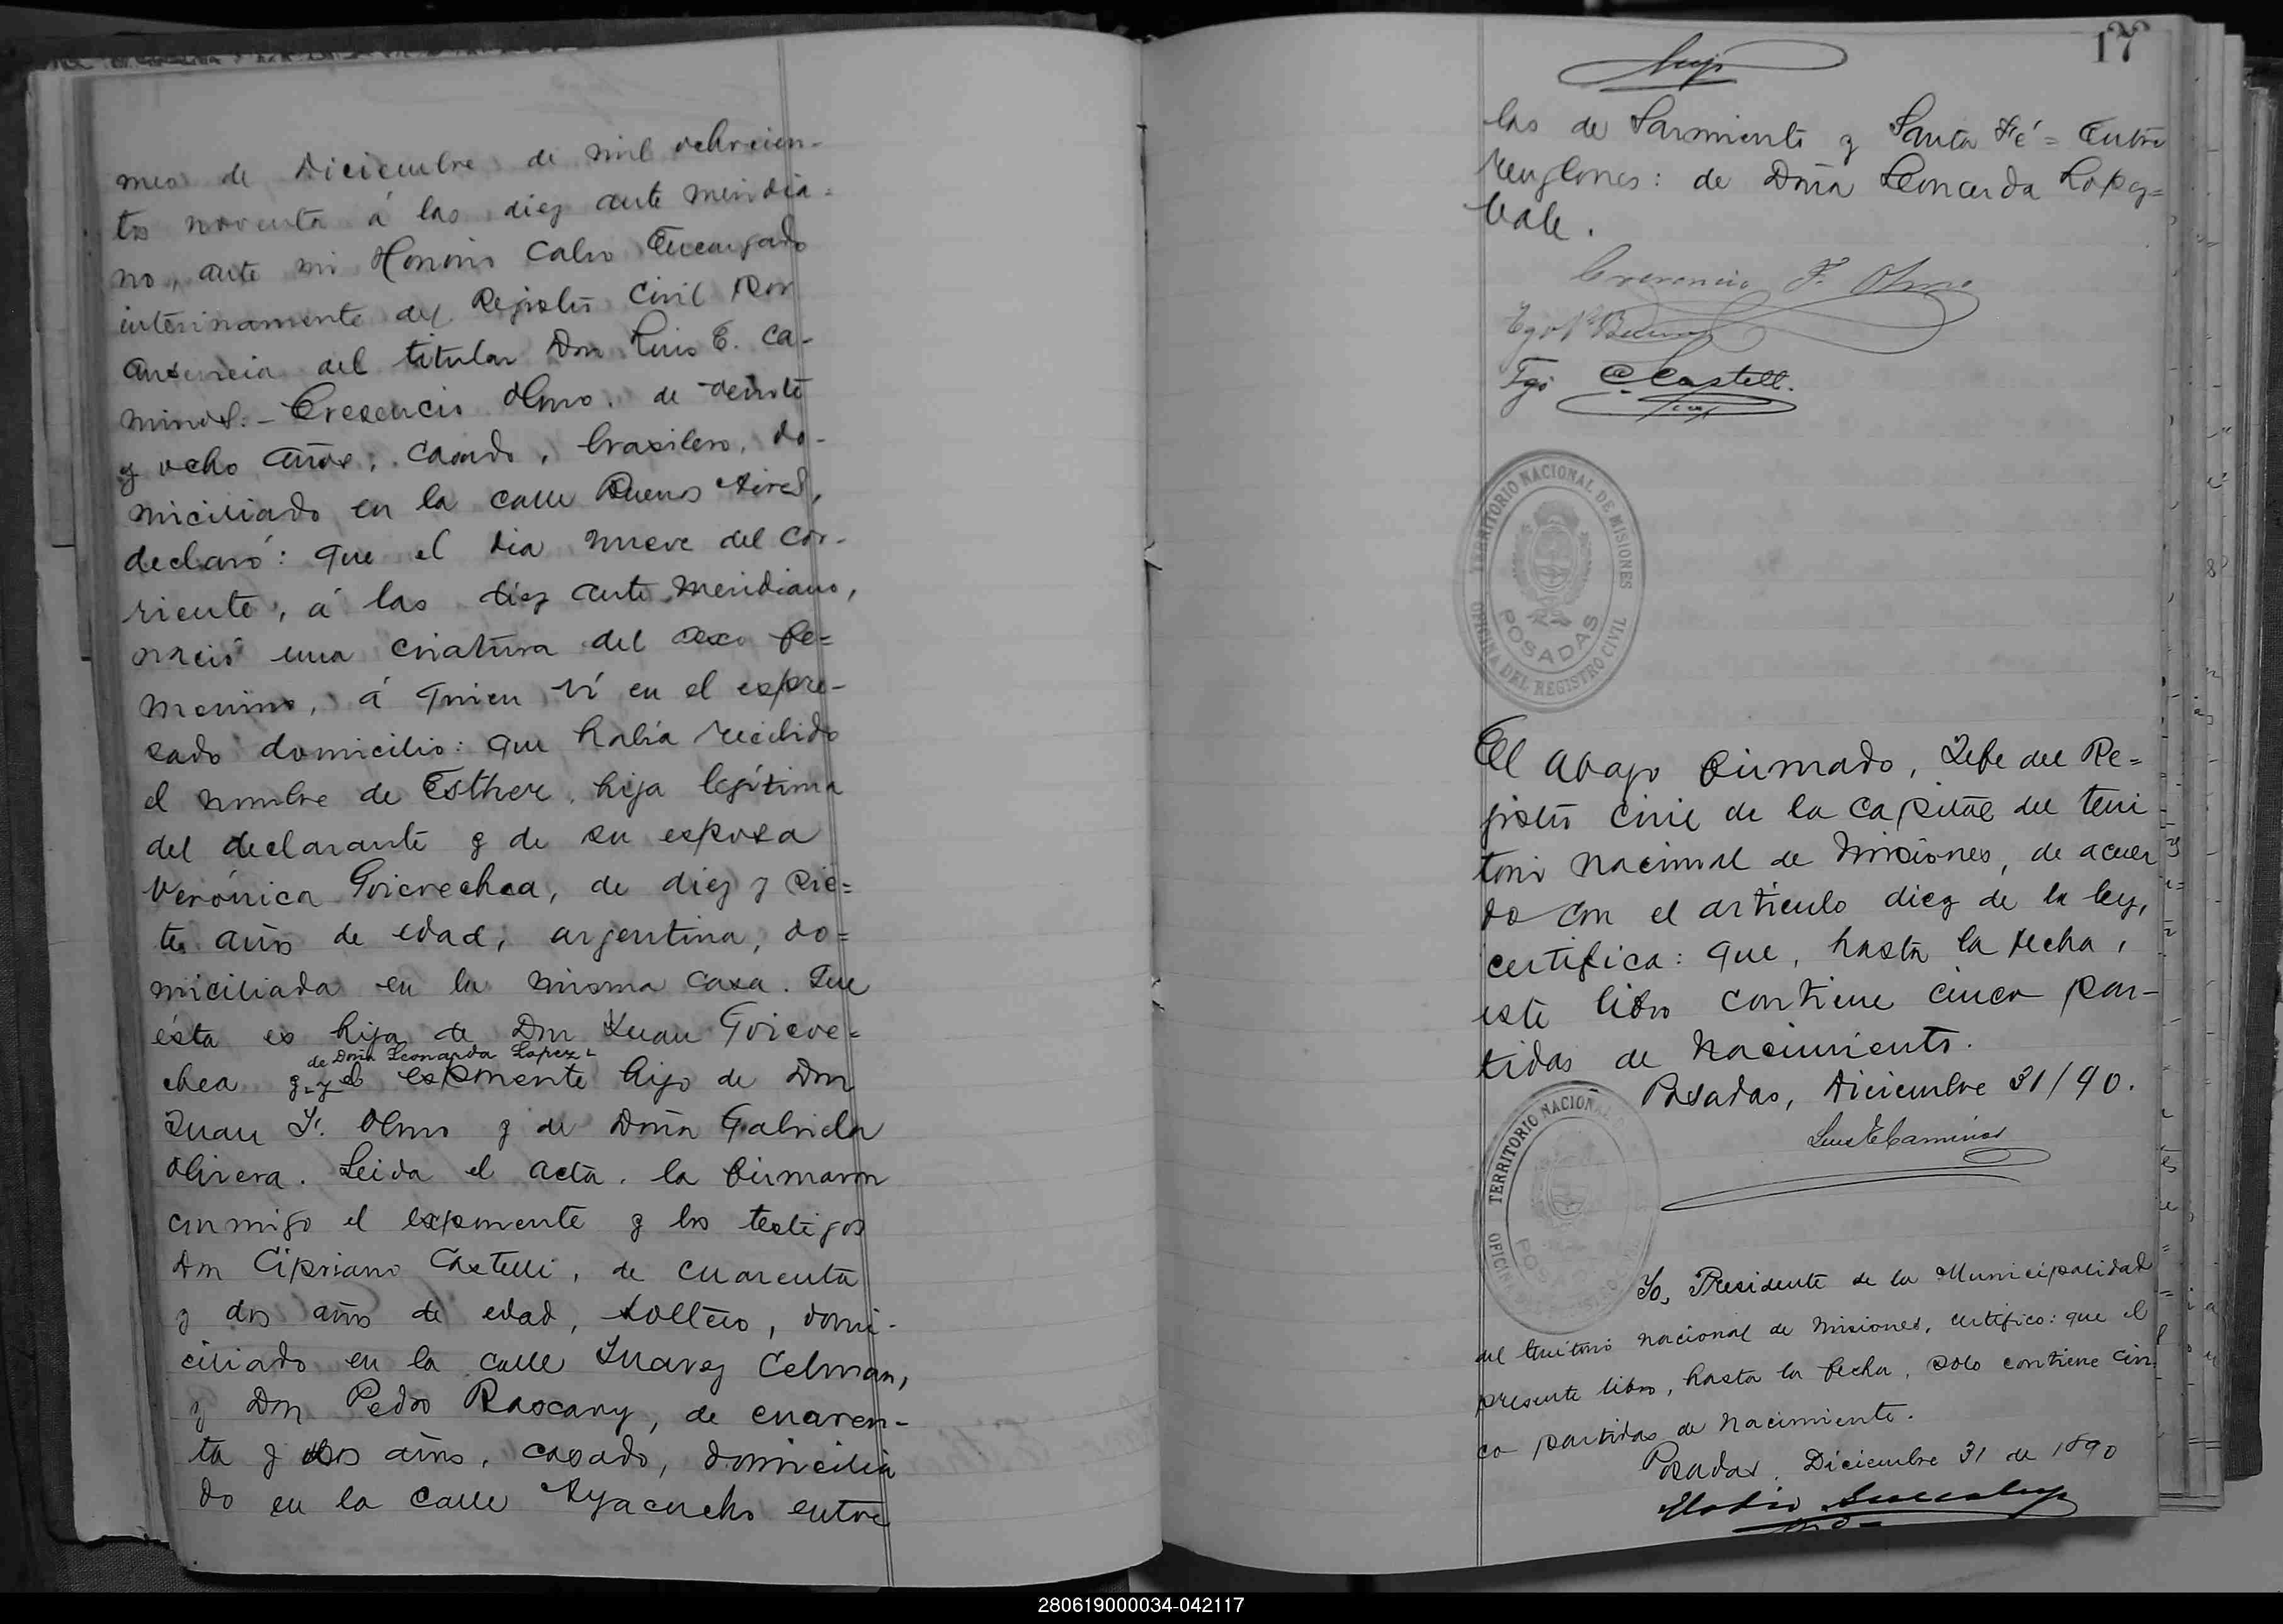 mes de Diciembre de mil ochocien-
tos noventa á las diez ante meridia=
no, ante mi Honorio Calvo Encargado
interinamente del Registro Civil por
ausencia del titular Don Luis E. Ca-
minos.- Cresencio Olmo. de veinte
y ocho años, casado, brasilero, do-
miciliado en la calle Buenos Aires,
declaró: que el dia nueve del cor-
riente, á las diez ante meridiano,
nació una criatura del sexo fe=
menino, á quien ví en el espre-
sado domicilio: que habia recibido
el nombre de Esther, hija legítima
del declarante y de su esposa
Verónica Goicoechea, de diez y sie=
te años de edad, argentina, do=
miciliada en la misma casa. Que
ésta es hija de Don Juan Goicoe=
de Doña Leonarda Lopez-
chea y-y el esponente hijo de Don
Juan F. Olmo y de Doña Gabriela
Olivera. Leida el acta. la firmaron
conmigo el exponente y los testigos
Don Cipriano Castelli, de cuarenta
y dos años de edad, soltero, domi-
ciliado en la calle Juarez Celman,
y Don Pedro Rascany, de cuaren-
ta y dos años, casado, domicilia
do en la calle Ayacucho entre
17
las de Sarmiento y Santa Fé = Entre
renglones: de Doña Leonarda Lopez=
Vale.
Cresencio F. Olmo
Tgo
Tgo C. Castelli.
TERRITORIO NACIONAL DE MISIONES
POSADAS
OFICINA DEL REGISTRO CIVIL
El abajo firmado, Jefe del Re=
gistro civil de la capital del terri
torio nacional de Misiones, de acuer
do con el artículo diez de la ley,
certifica: que, hasta la fecha,
este libro contiene cinco par-
tidas de nacimiento.
Posadas, Diciembre 31/90.
Luis E Caminos
TERRITORIO NACIONAL
Yo, Presidente de la Municipalidad
del territorio nacional de Misiones, certifico: que el
presente libro, hasta la fecha, solo contiene cin
co partidas de nacimiento.
Posadas, Diciembre 31 de 1890
280619000034-042117